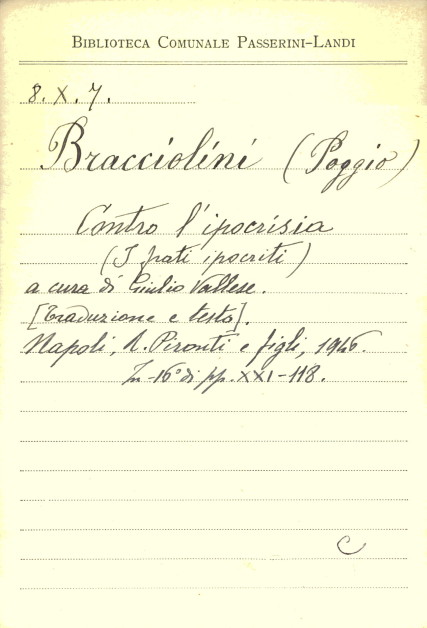 BIBLIOTECA COMUNALE PASSERINI-LANDI
8. X. 7.
Bracciolini (Poggio)
Contro l'ipocrisia
(I frati ipocriti)
a cura di Giulio Vallese.
[Traduzione e testo].
Napoli, R. Pironti e figli, 1946.
In-16° di pp. XXI-118.
C